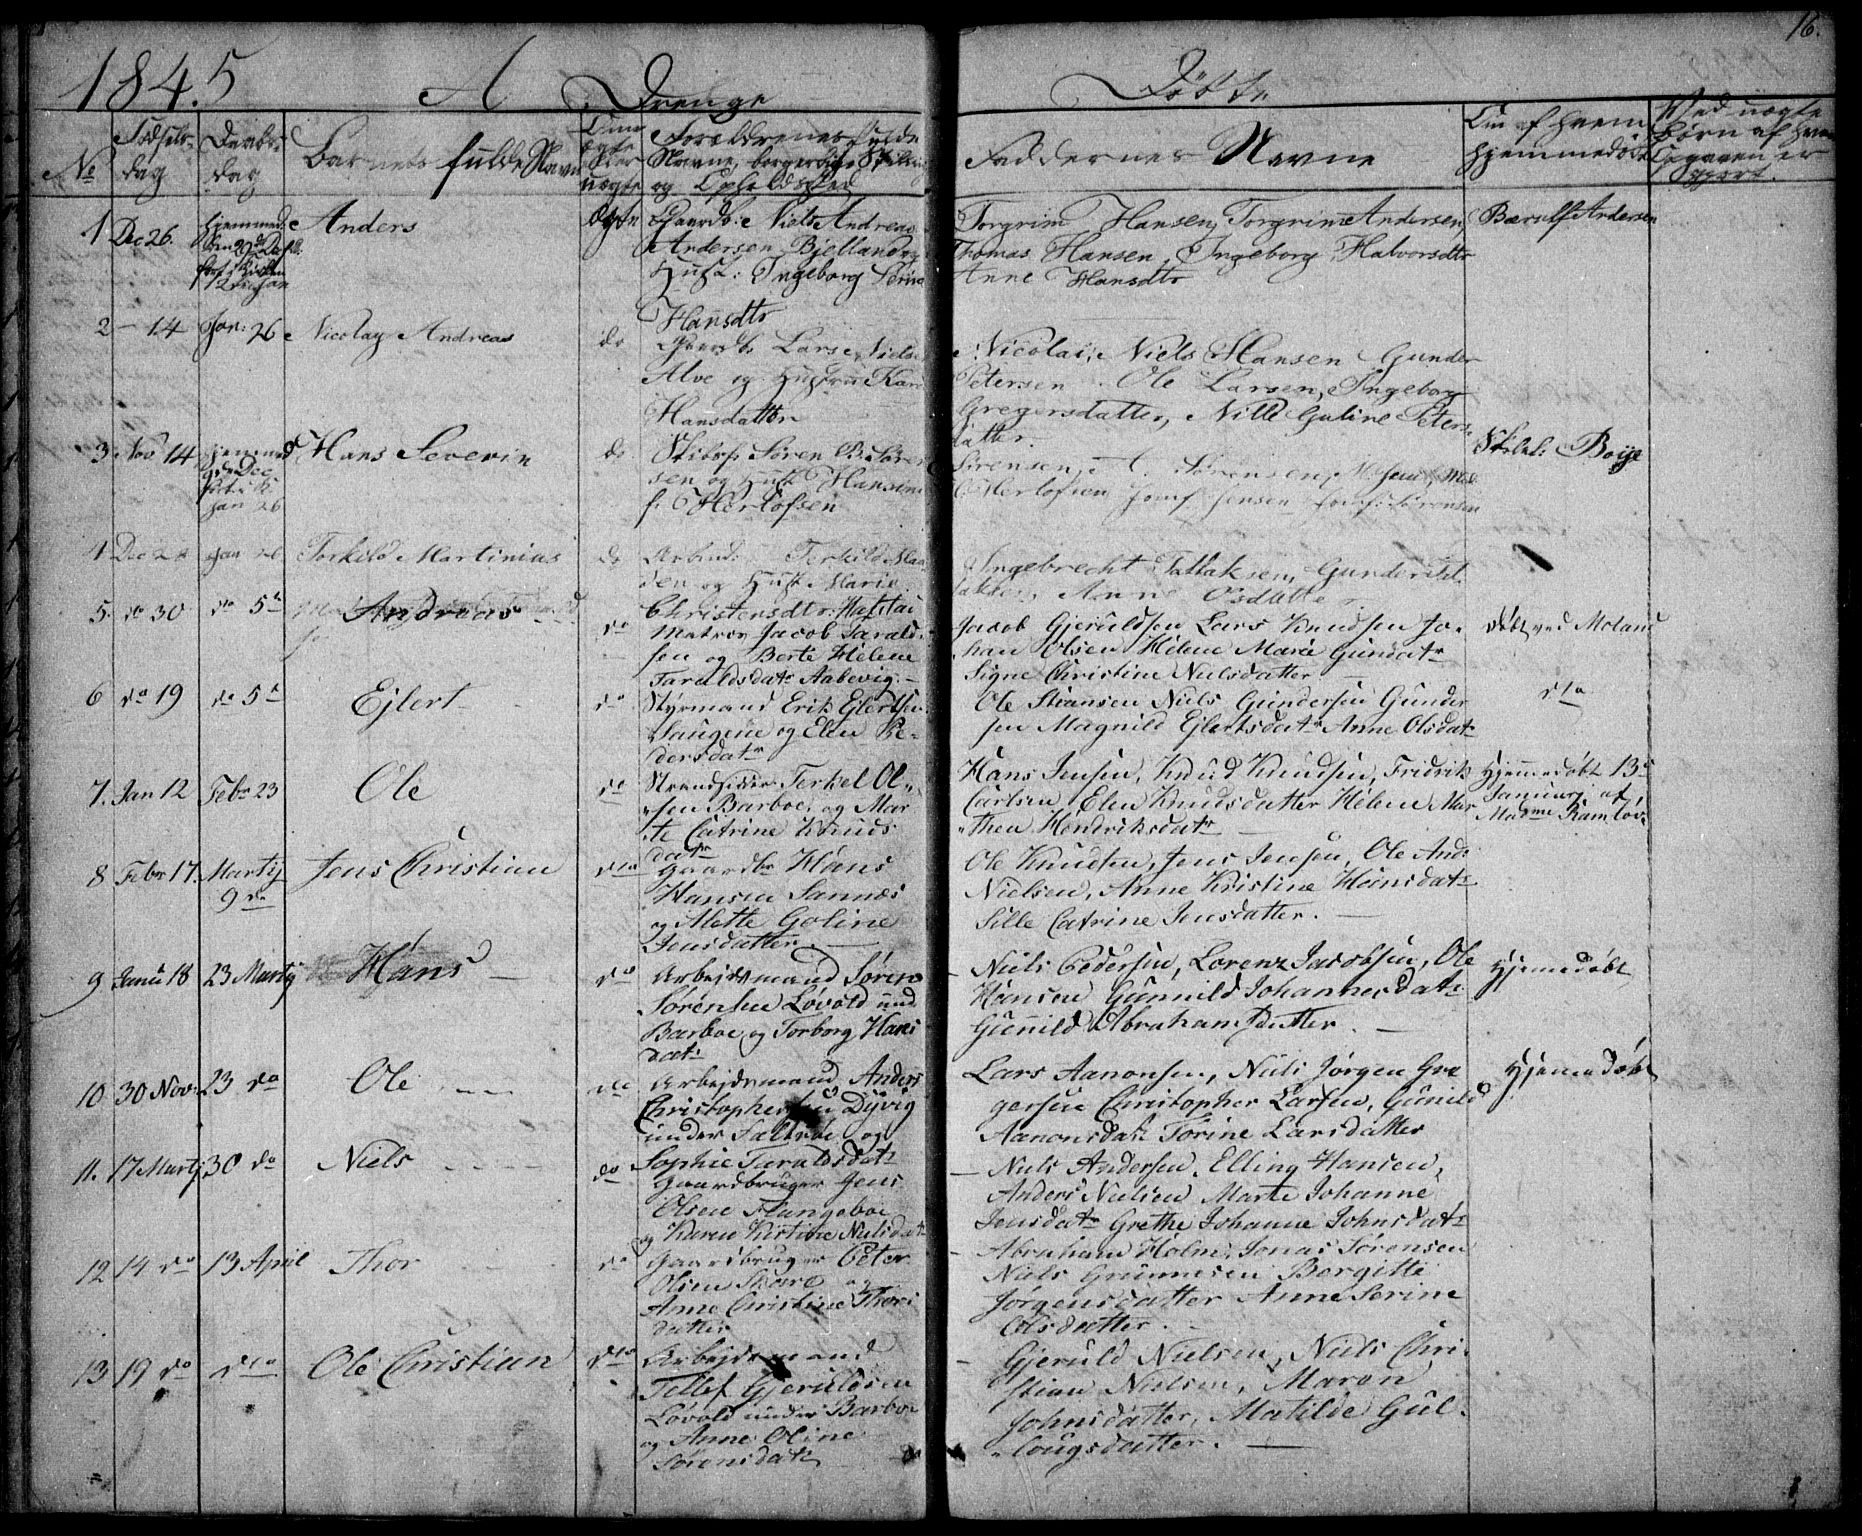 16.
1845 A Drenge Döbte
No
Födsels-
dag
Daabs-
dag
Barnets fulde Navn
Om
ægte
eller
uægte
Forældrenes fulde
Navne, borgerlige Stilling
og Opholdssted
Faddernes Navne
Om af hvem
hjemmedöbt
Ved uægte
börn af hvem
Opgaven er
gjort.
1 Dec 26. Hjemmed. Anders ægte Gaardb: Niels Andreas
Andersen Bjelland og
Hust: Ingeborg Serine
Hansdtr
Torgrim Hansen, Torgrim Andersen,
Thomas Hansen, Ingeborg Halvorsdtr
Anne Hansdtr
Bærulf Andersen
2 - 14 Jan: 26 Nicolay Andreas do Gaardb. Lars Niels
Alve og Hustru Karen
Hansdatter
Nicolai, Niels Hansen Gunder
Petersen Ole Larsen, Ingeborg
Gregersdatter, Nille Guline Peters
datter.
3 Nov 14 hjemmed Hans Severin do. Skibsf. Sören B. Sören
sen og Hust Hansine
f. Herlofsen
Sörensen, A. Sörensen,
Herlofsen Josef Jensen Josef: Sörensen
Boije
4 Dec Jan 26 Torkild Martinius do Arbeid: Terkild
og Hust Marie
Christensdtr:
Ingebrecht Tallaksen, Gunder
Anne Osdatter
5. do 30 do 5te Andreas do Matros Jacob Tarald-
sen og Berte Helene
Taraldsdatr Aabevig.-
Jacob Gjeruldsen Lars Knudsen Jo-
han Olsen Helene Marie Gundatr
Signe Christine Nielsdatter -
Döbt ved Moland
6 do 19 do 5te Ejlert do Styrmand Erik Ejlertsen
Saugene og Elen Pe-
dersdatr
Ole Stiansen Niels Gundersen Gunder
sen Magnild Ejlertsdatr Anne Olsdatr
dto
7. Jan 12 Febr 23 Ole do Strandsidder Terkel Ol-
sen Barboe, og Mar
te Catrine Knuds
datr
Hans Jensen, Knud Knudsen, Fridrik
Carlsen Elen Knudsdatter Helene Mar
then Hendriksdatr -
Hjemmedöbt 13de
Januari af
Madme Ramlöv
8 Febr 17. Martij
9 de
Jens Christian dto Gaardbr Hans
Hansen Sannæs
og Mette Goline
Jensdatter. -
Ole Knudsen, Jens Jensen, Ole And:
Nielsen, Anne Kristine Hansdatr
Sille Catrine Jensdatter. -
9 Janu 18 23 Martij Hans - do Arbejdsmand Sören
Sörensen Lövold und
Barboe og Torborg Hans
datr
- Niels Pedersen, Lorenz Jacobsen, Ole
Hansen Gunnild Johannesdatr
Gunild Abrahamsdatter. -
Hjemedöbt
10 30 Nov: 23 do Ole do Arbejdsmand Anders
Christophersen Dyvig
under Faltröe og
Sophie Taraldsdatr
Lars Aanonsen, Niels Jörgen Gre
gersen Christopher Larsen, Gunild
Aanonsdatr Torine Larsdatter
Hjemedöbt
11. 17 Martj 30 do Niels do Gaardbruger Jens
Olsen Flangeboe
og Karen Kistine Nielsdatr
- Niels Andersen, Elling Hansen,
Anders Nielsen Marte Johanne
Jensdatr Grethe Johanne Johnsdatr
12 14 do 13 April Thor do Gaardbruger Peter
Olsen og
Anne Christine Thors
datter
- Abraham Holm, Jonas Sörensen
Niels Grunnesen Bergitte
Jörgensdatter Anne Serine
Olsdatter. -
13 19 do dto Ole Christian dto Arbejdsmand
Tellef Gjeruldsen
Lövold under Barboe
og Anne Oline
Sörensdatr
- Gjeruld Nielsen, Niels Chri-
stian Nielsen, Maren
Johnsdatter, Matilde Gul-
lougsdatter. -